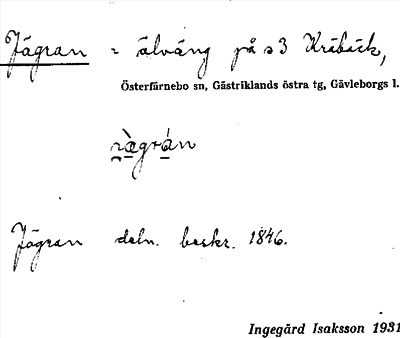 Jägran = älväng på s3 Kräbäck,
Österfärnebo sn, Gästriklands östra tg, Gävleborgs l.
Jägran deln. beskr. 1846.
Ingegärd Isaksson 1931